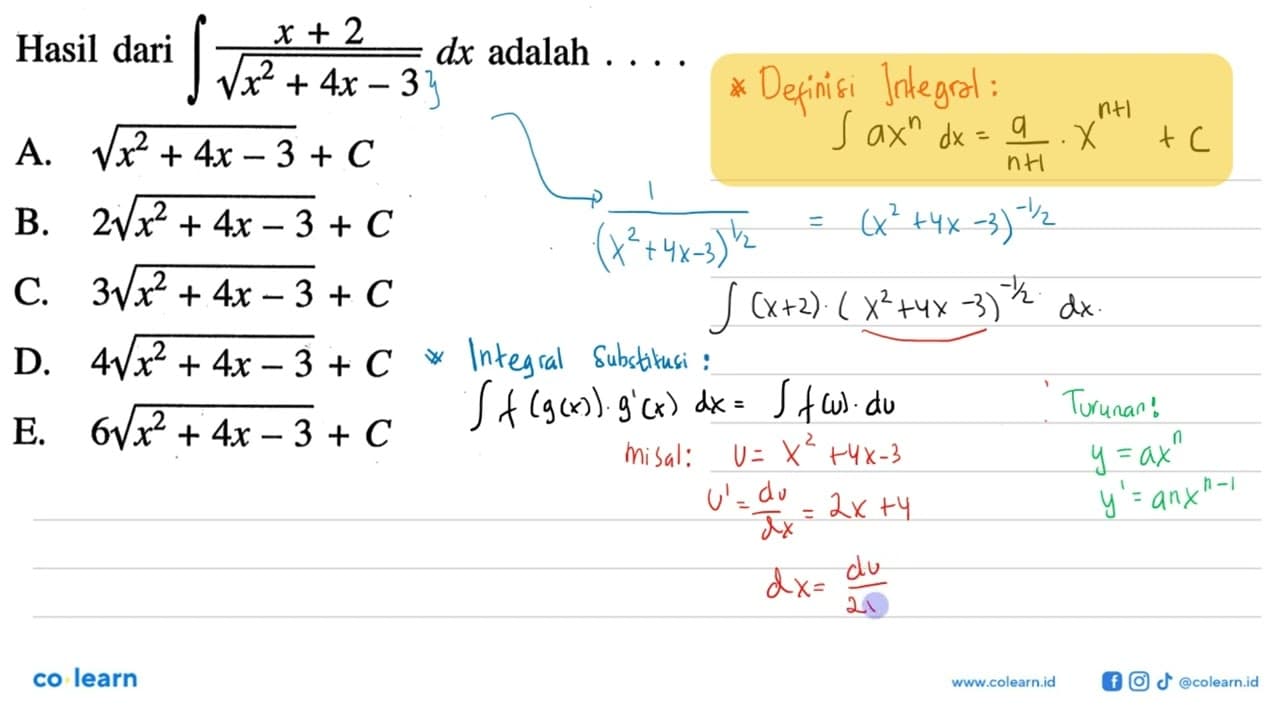 Hasil dari ∫ (x + 2)/√(x² + 4x – 3) dx adalah . . . .
A. √(x² + 4x – 3) + C
B. 2√(x² + 4x – 3) + C
C. 3√(x² + 4x – 3) + C
D. 4√(x² + 4x – 3) + C
E. 6√(x² + 4x – 3) + C
* Definisi Integral :
∫ axⁿ dx = a/(n+1) · x^(n+1) + C
1/(x² + 4x – 3)^(1/2) = (x² + 4x – 3)^(-1/2)
∫ (x+2) · (x² + 4x – 3)^(-1/2) dx.
* Integral Substitusi :
∫ f(g(x)) · g'(x) dx = ∫ f(u) · du
misal: U = x² + 4x – 3
U' = du/dx = 2x + 4
dx = du/2x
Turunan!
y = axⁿ
y' = anx^(n-1)
co learn
www.colearn.id
@colearn.id